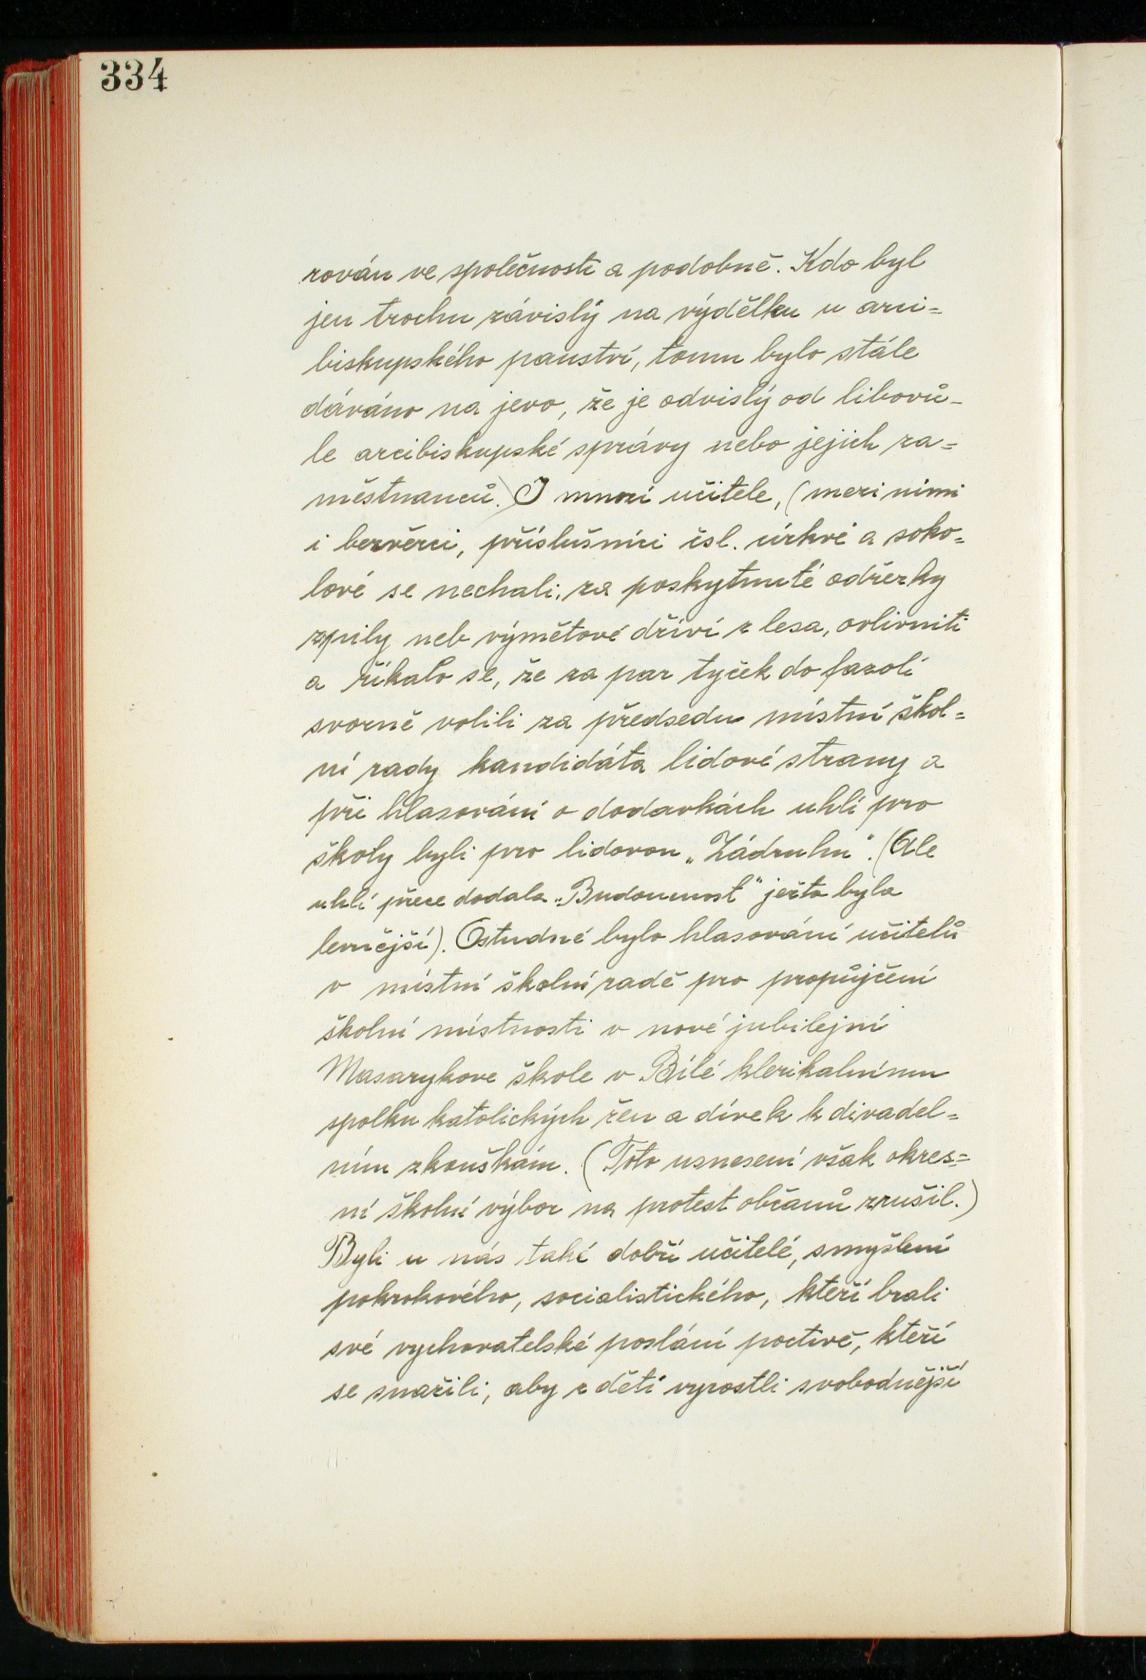 334
rován ve společnosti a podobně. Kdo byl
jen trochu závislý na výdělku u arci=
biskupského panství, tomu bylo stále
dáváno na jevo, že je odvislý od libovů-
le arcibiskupské správy nebo jejich za=
městnanců.) I mnozí učitele, (mezi nimi
i bezvěrci, příslušníci čsl. církvé a soko=
lové se nechali, za poskytnuté odřezky
zpily neb výmětové dříví z lesa, ovlivniti
a říkalo se, že za par tyček do fazolí
svorně volili za předsedu místní škol=
ní rady kandidáta lidové strany a
při hlasování o dodavkách uhlí pro
školy byli pro lidovou „Zádruhu". (Ale
uhlí přece dodala „Budoucnost" ježto byla
levnější). Ostudné bylo hlasování učitelů
v místní školní radě pro propůjčení
školní místnosti v nové jubilejní
Masarykove škole v Bílé klerikalnímu
spolku katolických žen a dívek k divadel=
ním zkouškám. (Toto usnesení však okres=
ní školní výbor na protest občanů zrušil.)
Byli u nás také dobří učitelé, smyšlení
pokrokového, socialistického, kteří brali
své vychovatelské poslání poctivě, kteří
se snažili, aby z dětí vyrostli svobodnější